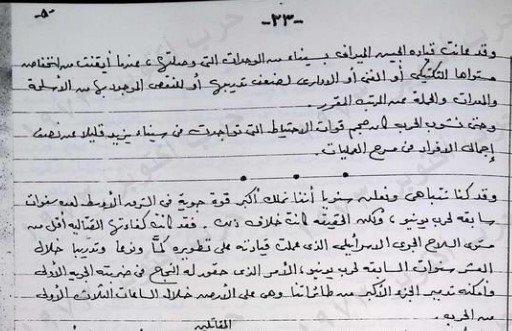 -٢٣-
وقد عانت قيادة الجيش الميداني بسيناء من الوحدات التي وصلتها، عندما أيقنت من انخفاض
مستواها التكتيكي أو الفني أو الإداري لضعف تدريبها أو للنقص الموجود بها من الأسلحة
والمعدات والحملة عن المرتب المقرر.
وحتى نشوب الحرب كان حجم قوات الاحتياط التي تواجدت في سيناء يزيد قليلا عن نصف
إجمالي الأفراد في مسرح العمليات.
• • •
وقد كنا نتباهى ونعلن سنويا أننا نملك أكبر قوة جوية في الشرق الأوسط لعدة سنوات
سابقة لحرب يونيو، ولكن الحقيقة كانت خلاف ذلك. فقد كانت كفاءتها القتالية أقل من
مستوى السلاح الجوي الإسرائيلي الذي عملت قيادته على تطويره كمًّا ونوعا وتدريبا خلال
العشر سنوات السابقة لحرب يونيو، الأمر الذي حقق له النجاح في ضربته الجوية الأولى
وأمكنه تدمير الجزء الأكبر من طائراتنا وهي على الأرض خلال الساعات الثلاث الأولى
من الحرب.